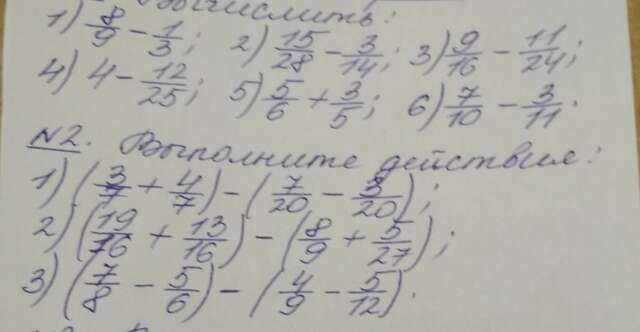 Вычислить:
1) 8/9 - 1/3; 2) 15/28 - 3/14; 3) 9/16 - 11/24;
4) 4 - 12/25; 5) 5/6 + 3/5; 6) 7/10 - 3/11.
N2. Выполните действия:
1) (3/7 + 4/7) - (7/20 - 3/20);
2) (19/16 + 13/16) - (8/9 + 5/27);
3) (7/8 - 5/6) - (4/9 - 5/12).